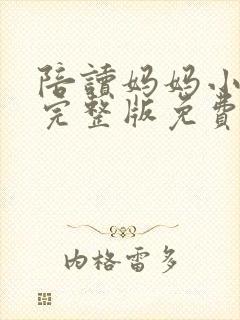 陪讀妈妈小
完整版免費
内格雷多